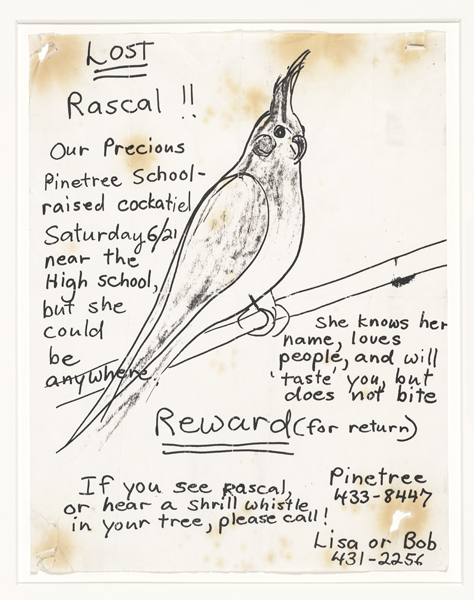 Lost
Rascal !!
Our Precious
Pinetree School-
raised cockatiel
Saturday 6/21
near the
High school,
but she
could
be
anywhere.
She knows her
name, loves
people, and will
'taste' you, but
does not bite
Reward (for return)
If you see Rascal,
or hear a shrill whistle
in your tree, please call!
Pinetree
433-8447
Lisa or Bob
431-2256